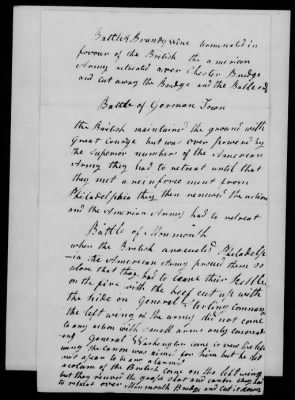 Battle of Brandy Wine termenated in
favour of the British the american
Army retreated over Chester Bridge
and cut away the Bridge and the Battle ended
Battle of German Town
the British maintained the ground with
Great Courage but was over powered by
the Superior number of the American
Army they had to retreat until that
they met a reinforcement from
Philadelphia they then renewed the action
and the American Army had to retreat
Battle of Monmouth
when the British evacuated Philadelp
-ia the American Army pursued them so
close that they had to leave their Kettles
on the fire with the beef cut up with
the hide on General Sterling commanded
the left wing of the army did not come
to any action with small arms only canonad
ing General Washington come to view the left
wing the canon was aimed for him but he did
not apear to be any alarmed
a colum of the British come on the left wing
but they received the grape shot and canister they had
to retreat over Monmouth Bridge and Cut it down